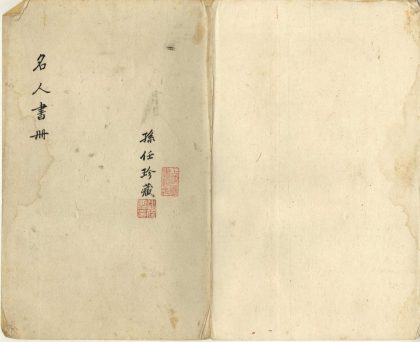 名人書冊
孫任珍藏